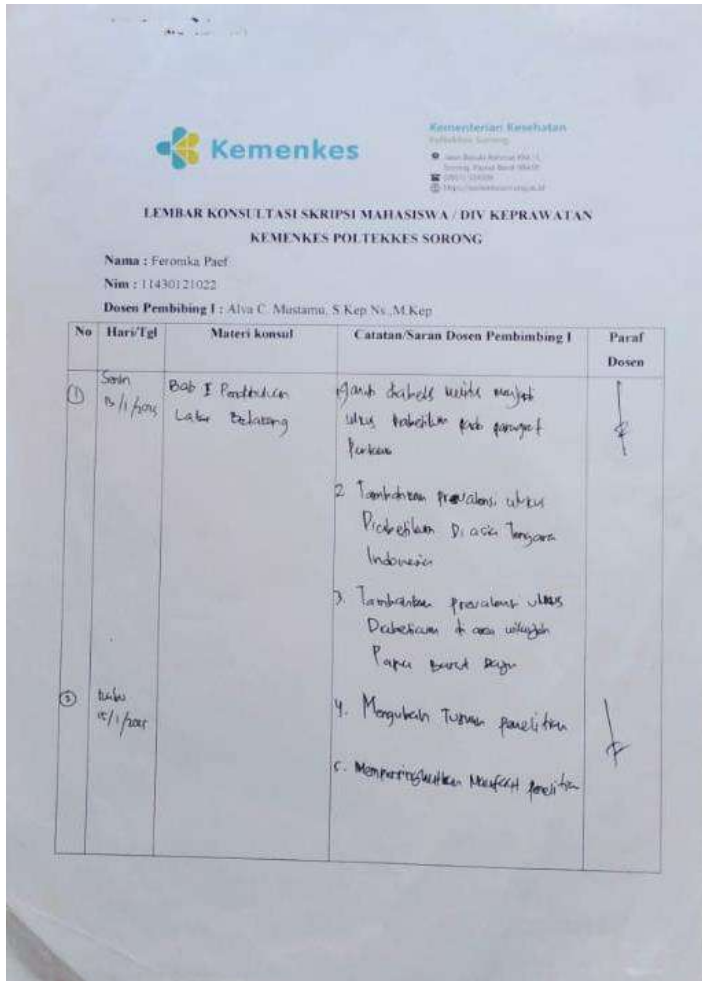 Kemenkes
Kementerian Kesehatan
Poltekkes Sorong
LEMBAR KONSULTASI SKRIPSI MAHASISWA / DIV KEPRAWATAN
KEMENKES POLTEKKES SORONG
Nama : Feromka Paef
Nim : 11430121022
Dosen Pembibing I : Alva C. Mustamu, S.Kep Ns.,M.Kep
No Hari/Tgl Materi konsul Catatan/Saran Dosen Pembimbing I Paraf
Dosen
1 Senin Bab I Pendahuluan Ganti diabetes melitus menjadi
13/1/2025 Latar Belakang ulkus diabetikum pada paragraf
2 Tambahkan prevalensi ulkus
Diabetikum Di asia Tenggara
Indonesia
3. Tambahkan prevalensi ulkus
Diabeticum di area wilayah
Papua Barat Daya
2 Rabu
15/1/2025 4. Mengubah Tujuan penelitian
5. Manfaat penelitian